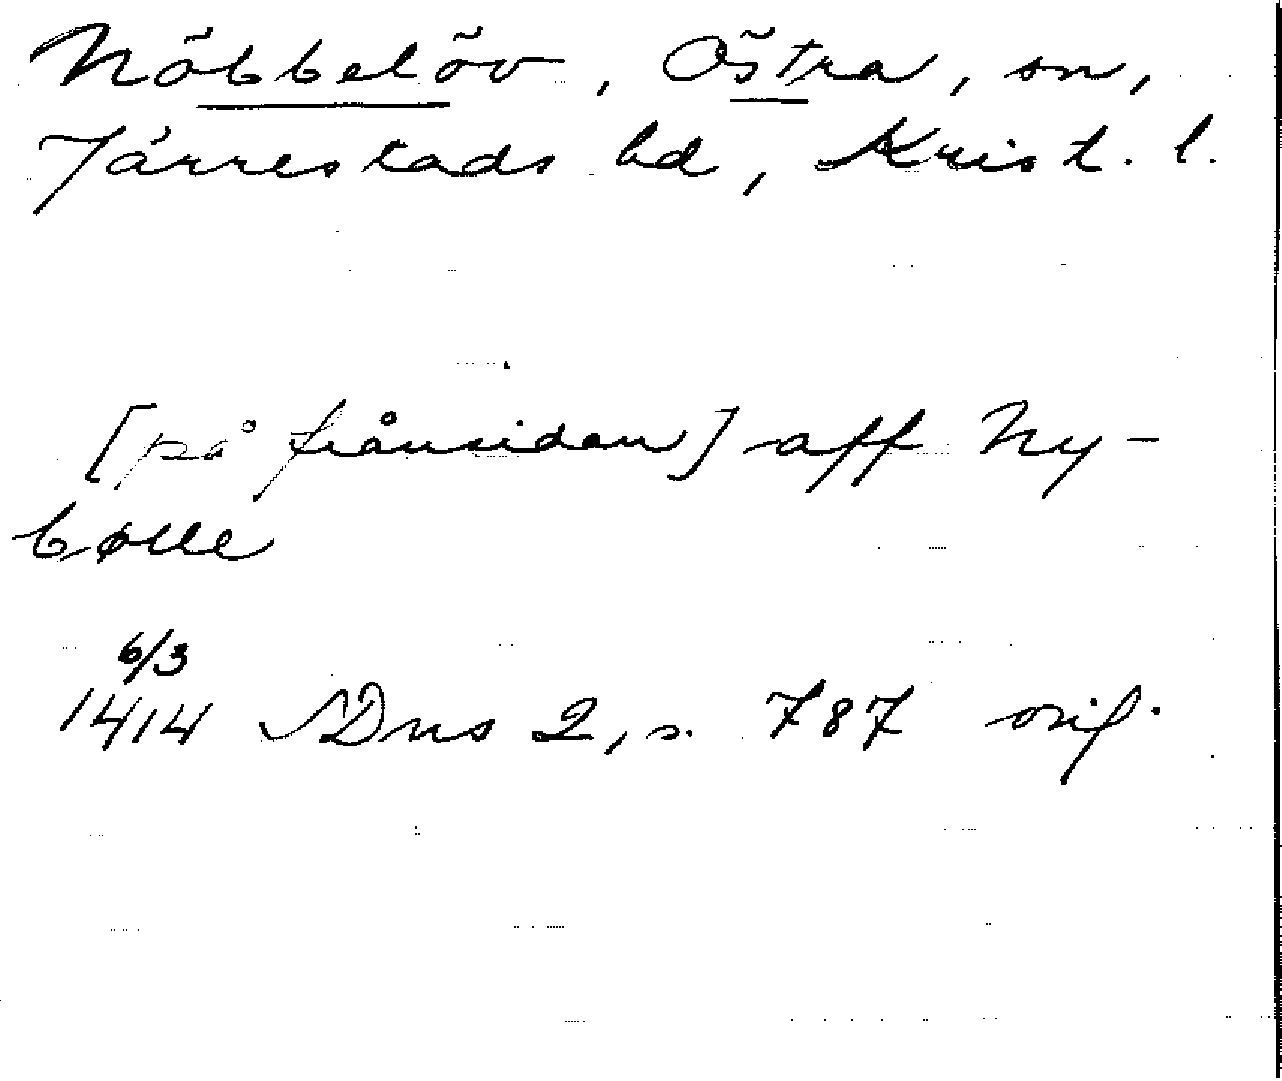 Nöbbelöv, Östra, sn,
Järrestads hd, Krist. l.
[på frånsidan] aff Ny-
bølle
6/3
1414 SDns 2, s. 787 orig.